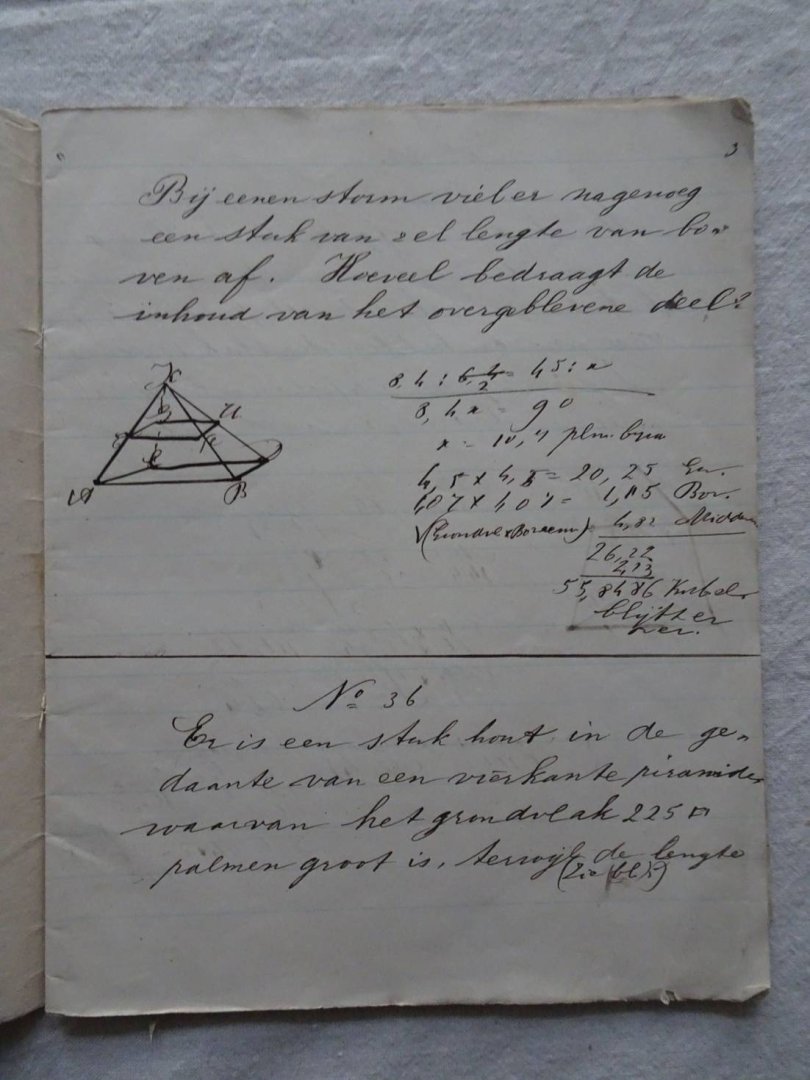 3
Bij eenen storm viel er nagenoeg
een stuk van 2 el lengte van bo=
ven af. Hoeveel bedraagt de
inhoud van het overgeblevene deel?
8,4 : 6,4 = 45 : x
2
8,4 x = 90
x = 10,7 plm. br
4,5 x 4,5 = 20,25 Gr.
x = 1,15 Bov.
√(Grondvl x Bovenv) = 4,82 Midden
26,22
2,13
55,8486 Kub el.
blijft er
over.
A
B
No 36
Er is een stuk hout in de ge=
daante van een vierkante piramide,
waarvan het grondvlak 225 □
palmen groot is, terwijl de lengte
(Zie bl 5)